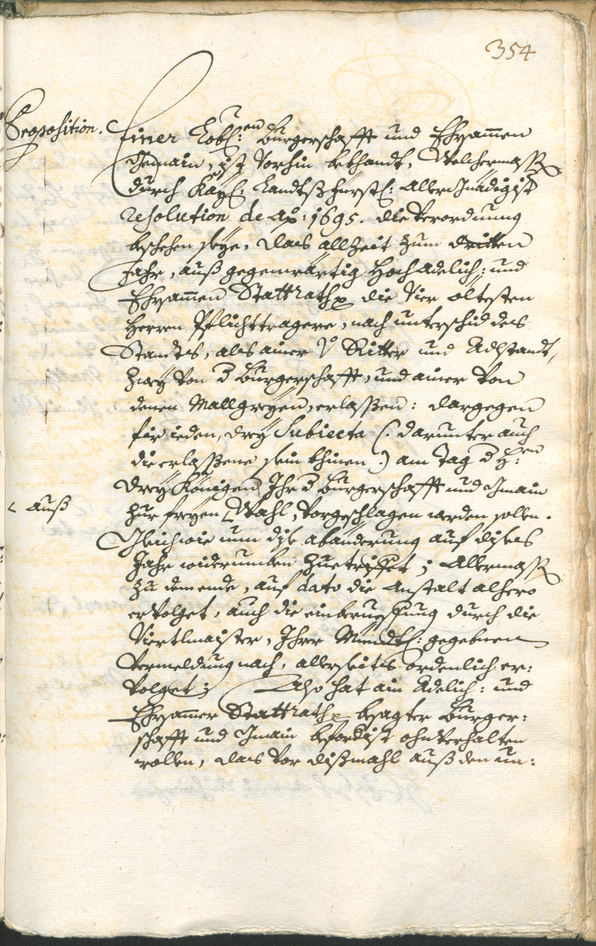 354
Proposition.
Einer Löbl:en Burgerschafft und Ehrsamen
Gemain, ist vorhin bekhandt, Welchermass
durch Kay: Landtsfürstl: Allergnädigist
resolution de ao: 1695. die verordnung
beschehen seye, dass allzeit zum dritten
Jahr, auß gegenwärtig Hoch Adelich: und
Ehrsamen Stattrath die Vier öltesten
Herren Pflichttragere, nach unterschid des
Standts, als ainer V Ritter und Adlstandt,
zway von d Burgerschafft, und ainer von
denen Mallgreyen, erlaßen: dargegen
für ieden, drey Subiecta /: darunter auch
die erlaßene sein khinen :/ am Tag d H:en
drey Königen Ihr d Burgerschafft und Gmain
zur freyen Wahl, vorgeschlagen werden sollen.
auß
Gleichwie nun dise abänderung auf dises
Jahr widerumben zuetrifft; Allermass
zu dem ende, auf dato die Anstalt alhero
ervolget, auch die einberueffung durch die
Viertlmaister, Ihrer Mindtl: gegebnen
Vermeldung nach, allerseits ordenlich er:
volget; Also hat ain Adelich: und
Ehrsamer Stattrath besagter Burger:
schafft und Gmain hiemit ohnverhalten
wollen, dass vor dißmahl auß den un: